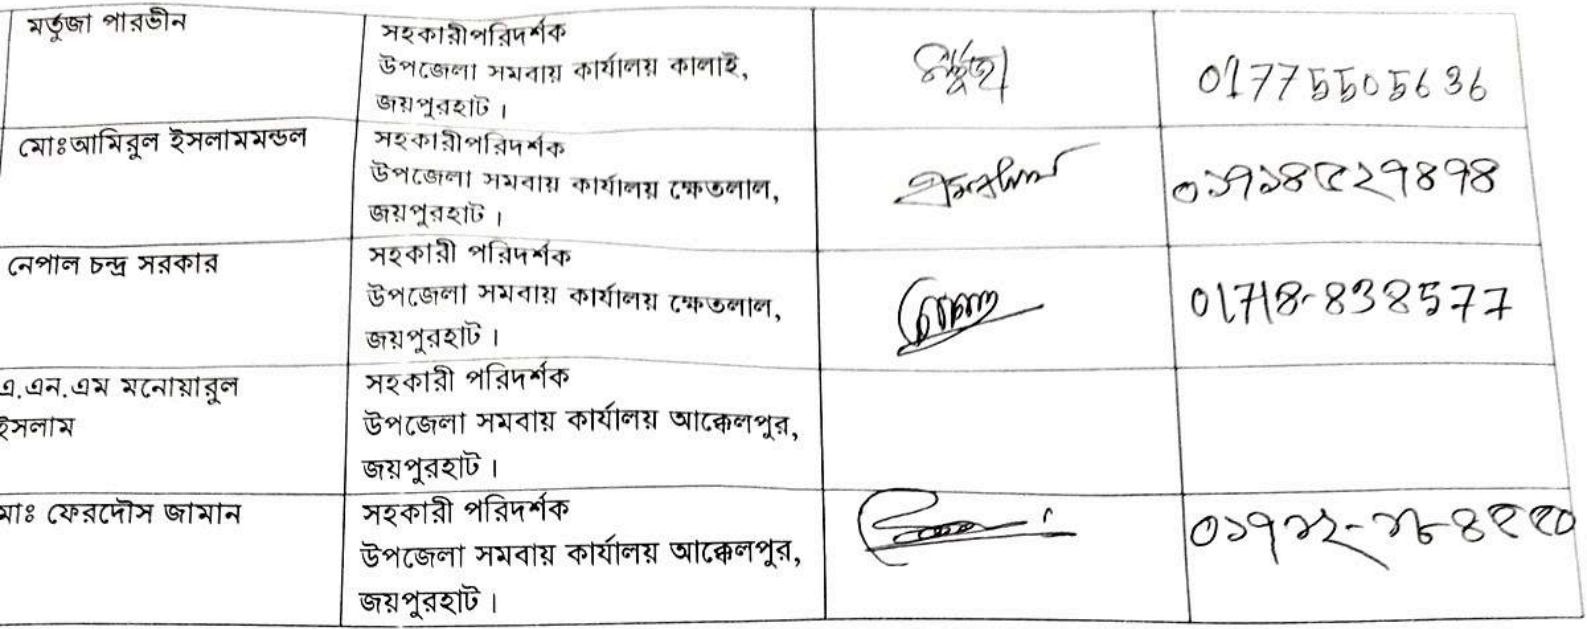 মর্তুজা পারভীন
সহকারীপরিদর্শক
উপজেলা সমবায় কার্যালয় কালাই,
জয়পুরহাট।
মর্তুজা
01775505636
মোঃআমিরুল ইসলামমন্ডল
সহকারীপরিদর্শক
উপজেলা সমবায় কার্যালয় ক্ষেতলাল,
জয়পুরহাট।
নেপাল চন্দ্র সরকার
সহকারী পরিদর্শক
উপজেলা সমবায় কার্যালয় ক্ষেতলাল,
জয়পুরহাট।
01718-838577
এ.এন.এম মনোয়ারুল
ইসলাম
সহকারী পরিদর্শক
উপজেলা সমবায় কার্যালয় আক্কেলপুর,
জয়পুরহাট।
মাঃ ফেরদৌস জামান
সহকারী পরিদর্শক
উপজেলা সমবায় কার্যালয় আক্কেলপুর,
জয়পুরহাট।